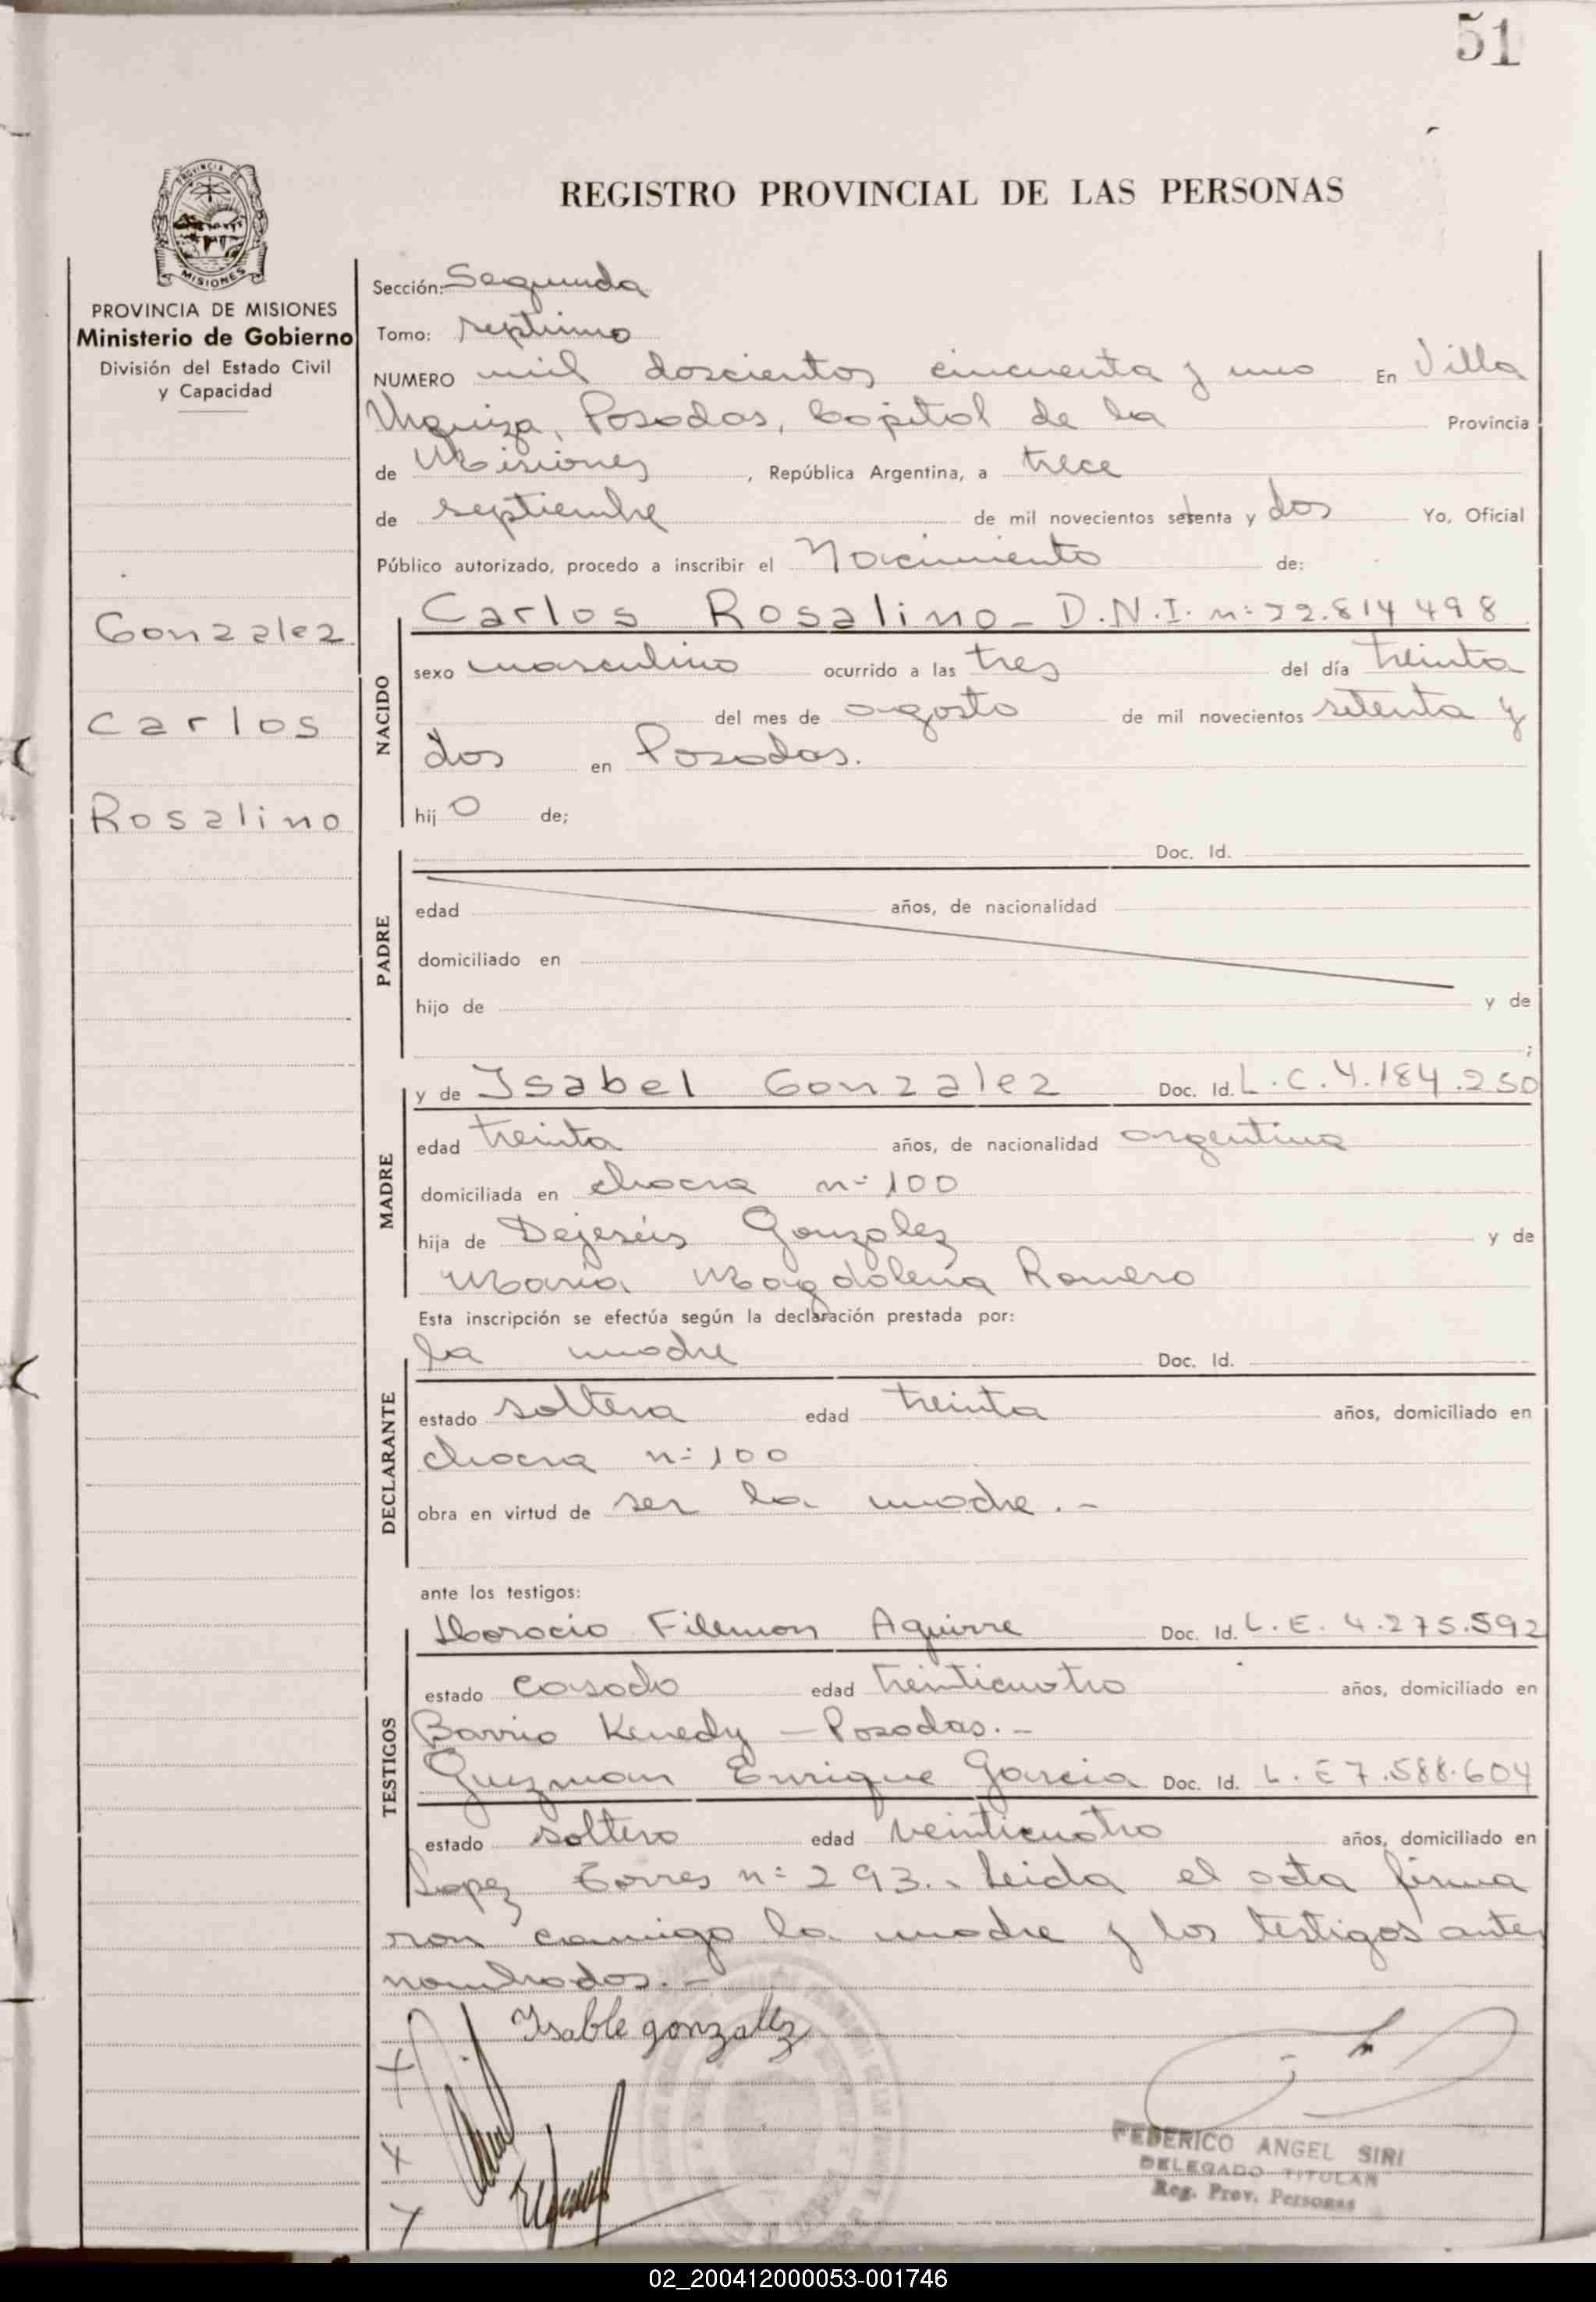 51
PROVINCIA DE
MISIONES
REGISTRO PROVINCIAL DE LAS PERSONAS
PROVINCIA DE MISIONES
Ministerio de Gobierno
División del Estado Civil
y Capacidad
Gonzalez
Carlos
Rosalino
Sección: Segunda
Tomo: septimo
NUMERO mil doscientos cincuenta y uno En Villa
Urquiza, Posadas, Capital de la Provincia
de Misiones, República Argentina, a trece
de septiembre de mil novecientos setenta y dos Yo, Oficial
Público autorizado, procedo a inscribir el Nacimiento de:
NACIDO
Carlos Rosalino - D.N.I. n: 22.814 498
sexo masculino ocurrido a las tres del día treinta
del mes de agosto de mil novecientos setenta y
dos en Posadas.
hij o de;
PADRE
Doc. Id.
edad años, de nacionalidad
domiciliado en
hijo de y de
;
MADRE
y de Isabel Gonzalez Doc. Id. L.C. 4.184.250
edad treinta años, de nacionalidad argentina
domiciliada en chacra n: 100
hija de Dejesús Gonzalez y de
Maria Magdalena Romero
Esta inscripción se efectúa según la declaración prestada por:
DECLARANTE
la madre Doc. Id.
estado soltera edad treinta años, domiciliado en
chacra n: 100
obra en virtud de ser la madre. -
ante los testigos:
TESTIGOS
Horacio Filemon Aguirre Doc. Id. L.E. 4.275.592
estado casado edad treinticuatro años, domiciliado en
Barrio Kenedy - Posadas. -
Guzman Enrique Garcia Doc. Id. L.E 7.588.604
estado soltero edad veinticuatro años, domiciliado en
Lopez Torres n: 293.. Leida el acta firma
ron conmigo la madre y los testigos ante
nombrados. -
Isable gonzallez
FEDERICO ANGEL SIRI
DELEGADO TITULAR
Reg. Prov. Personas
02_200412000053-001746